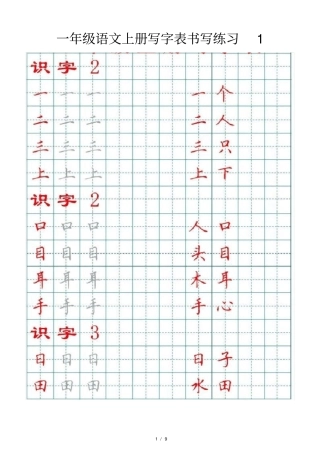 一年级语文上册写字表书写练习 1
识字 2
一 一 一 一个
二 二 二 二人
三 三 三 三只
上 上 上 上下
识字 2
口 口 口 人口
目 目 目 头目
耳 耳 耳 木耳
手 手 手 手心
识字 3
日 日 日 日子
田 田 田 水田
1 / 3